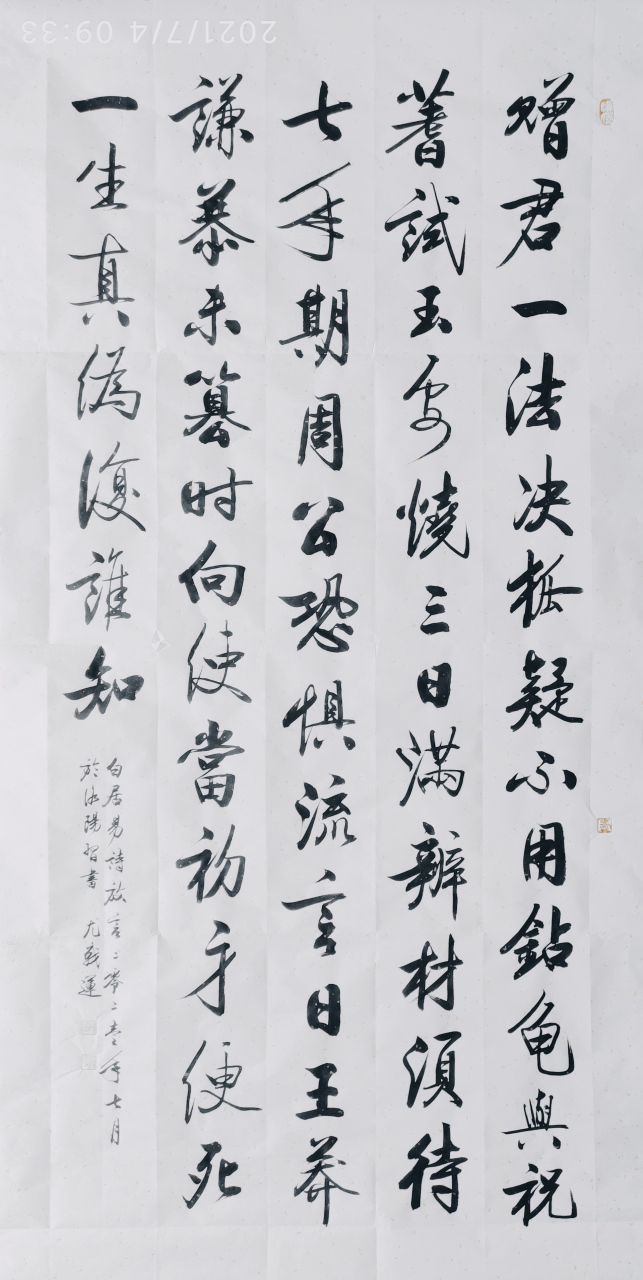 赠君一法决狐疑不用鉆龟與祝
蓍試玉要燒三日滿辨材須待
七年期周公恐惧流言日王莽
謙恭未篡时向使當初身便死
一生真偽復誰知
白居易詩放言二零二壹年七月
於陽習書 尤戰運
2021/7/4 09:33